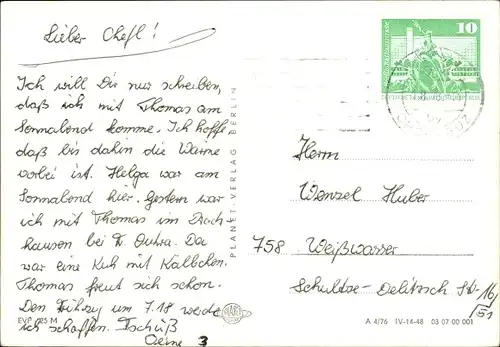 Lieber Chefl!
Ich will Dir nur schreiben,
daß ich mit Thomas am
Sonnabend komme. Ich hoffe
daß bis dahin die Wärme
vorbei ist. Helga war am
Sonnabend hier. Gestern war
ich mit Thomas im
hausen bei Da
war eine Kuh mit Kälbchen.
Thomas freut sich schon.
Den Frühzug um 7.18 werde
ich schaffen. Tschüß
3
EVP 0,25 M
PLANET-VERLAG BERLIN
10
Herrn
Wenzel Huber
758 Weißwasser
Schultze-Delitzsch Str. 16
/51
A 4/76 IV-14-48 03 07 00 001